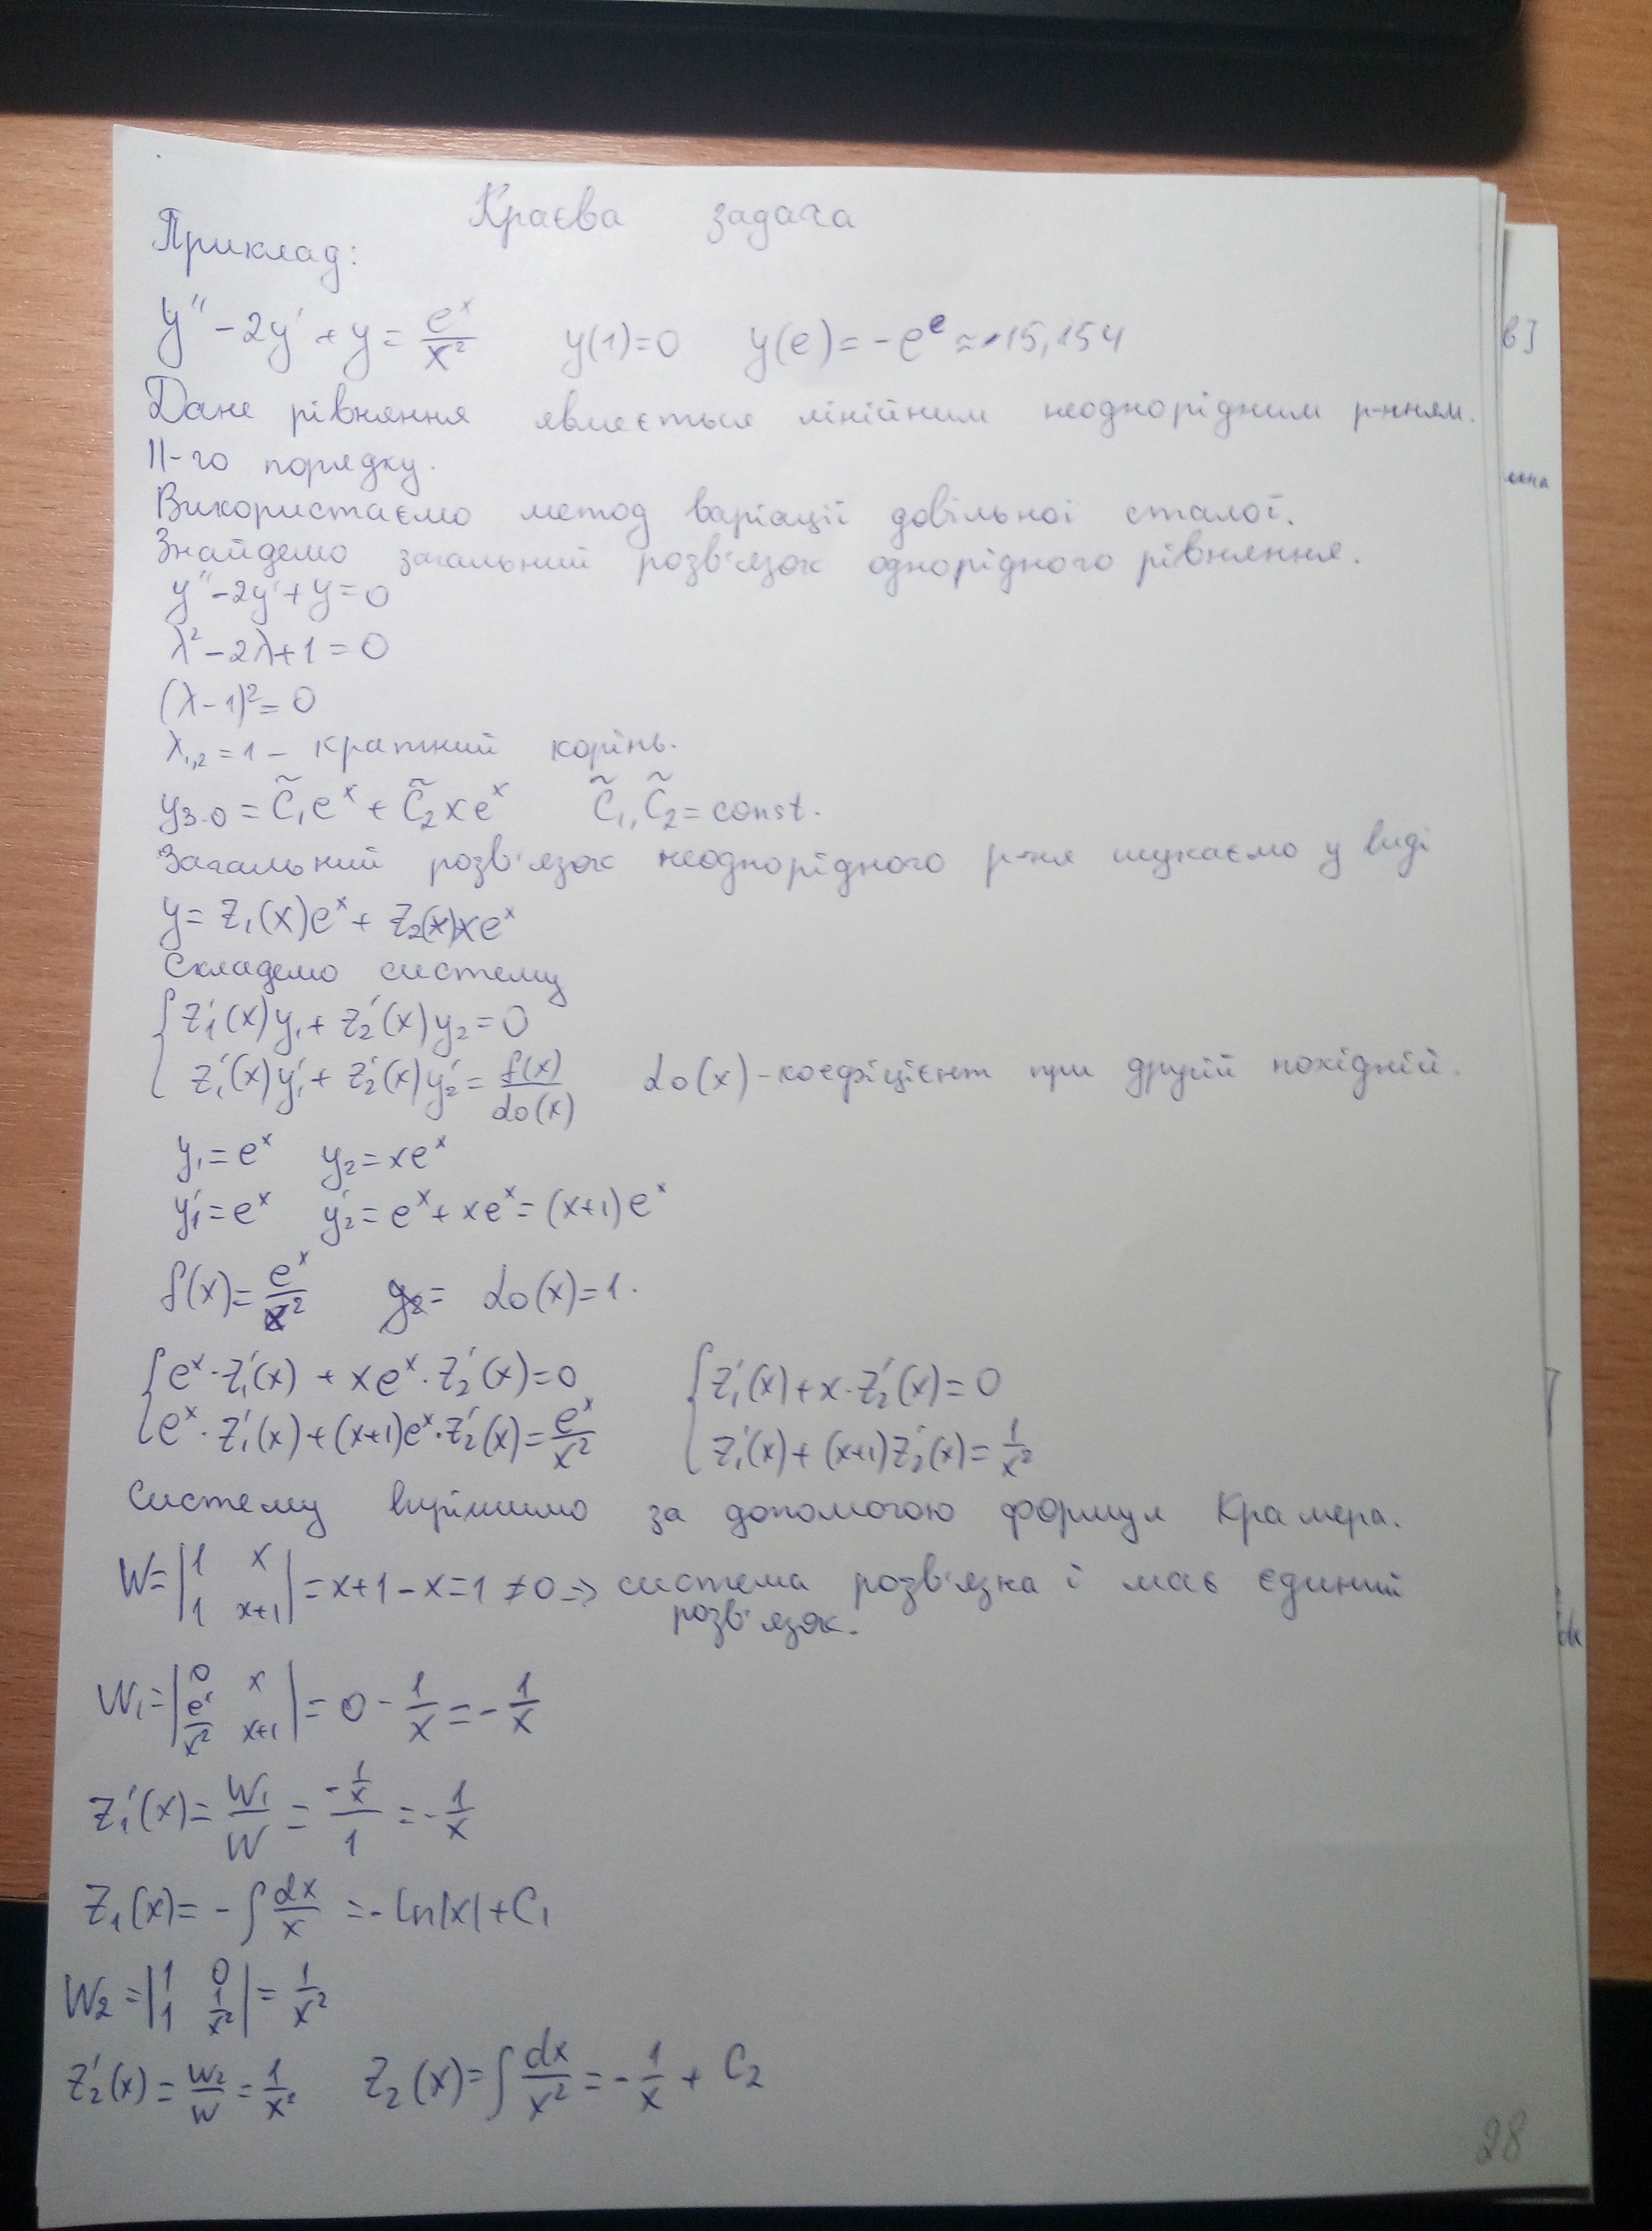 Краєва задача
Приклад:
y'' - 2y' + y = e^x/x^2   y(1)=0   y(e) = -e^e ≈ -15,154
Дане рівняння являється лінійним неоднорідним р-нням.
II-го порядку.
Використаємо метод варіації довільної сталої.
Знайдемо загальний розв'язок однорідного рівняння.
y'' - 2y' + y = 0
λ^2 - 2λ + 1 = 0
(λ - 1)^2 = 0
λ_{1,2} = 1 – кратний корінь.
y_{з.о} = C̃_1 e^x + C̃_2 x e^x   C̃_1, C̃_2 = const.
Загальний розв'язок неоднорідного р-ня шукаємо у виді
y = z_1(x)e^x + z_2(x)xe^x
Складемо систему
{ z_1'(x)y_1 + z_2'(x)y_2 = 0
z_1'(x)y_1' + z_2'(x)y_2' = f(x)/α_0(x)   α_0(x) - коефіцієнт при другій похідній.
y_1 = e^x   y_2 = xe^x
y_1' = e^x   y_2' = e^x + xe^x = (x+1)e^x
f(x) = e^x/x^2   α_0(x) = 1.
{ e^x·z_1'(x) + xe^x·z_2'(x) = 0   { z_1'(x) + x·z_2'(x) = 0
e^x·z_1'(x) + (x+1)e^x·z_2'(x) = e^x/x^2   z_1'(x) + (x+1)z_2'(x) = 1/x^2
Систему вирішимо за допомогою формул Крамера.
W = |1 x; 1 x+1| = x+1-x = 1 ≠ 0 => система розв'язна і має єдиний
розв'язок.
W_1 = |0 x; e^x/x^2 x+1| = 0 - 1/x = -1/x
z_1'(x) = W_1/W = (-1/x)/1 = -1/x
z_1(x) = -∫dx/x = -ln|x| + C_1
W_2 = |1 0; 1 1/x^2| = 1/x^2
z_2'(x) = W_2/W = 1/x^2   z_2(x) = ∫dx/x^2 = -1/x + C_2
28